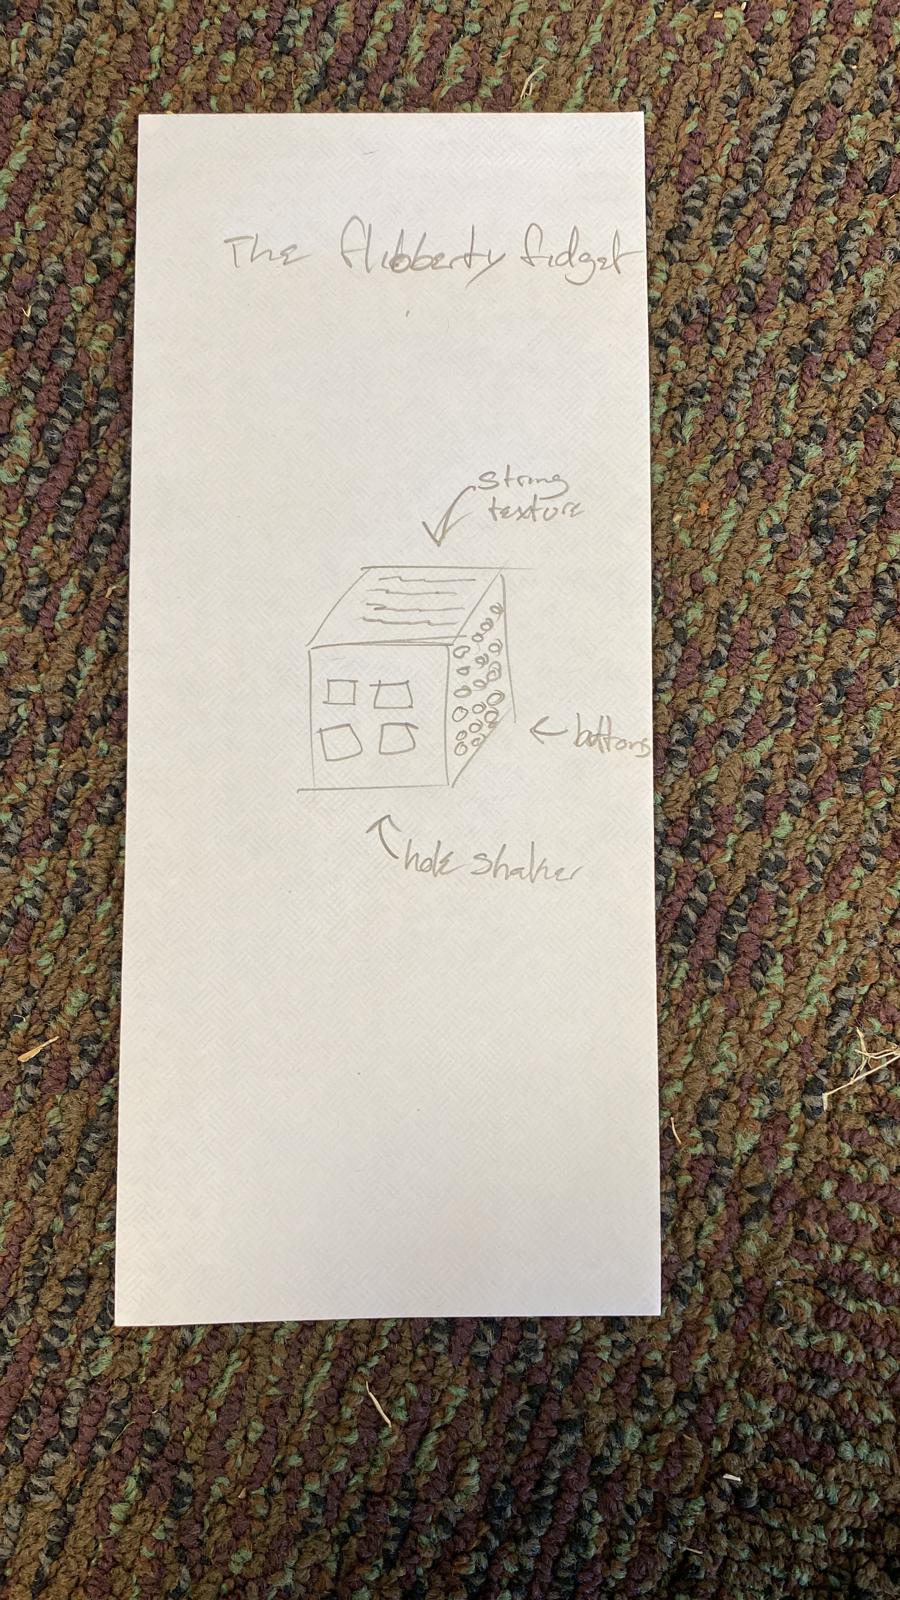 The flibberty fidget
string
texture
buttons
hole shaker